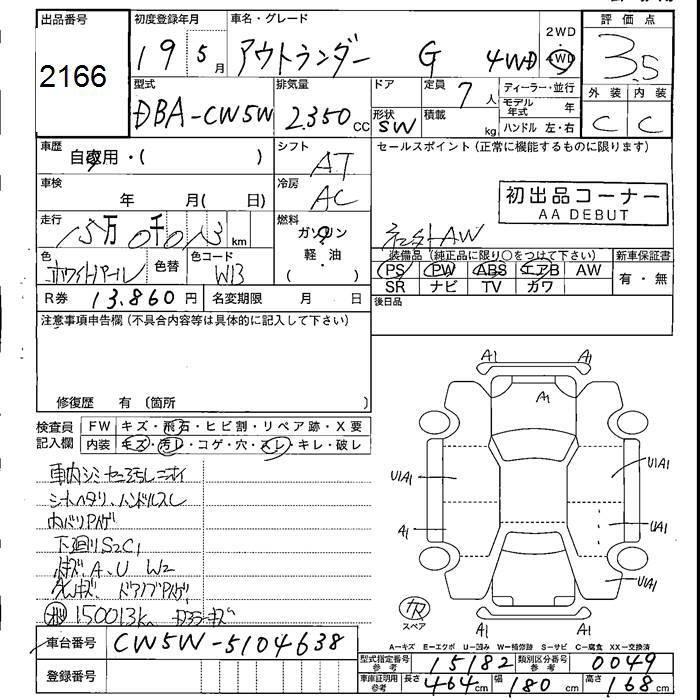 出品番号 初度登録年月 車名・グレード 2WD 評価点
2166 19 5月 アウトランダー G 4WD 4WD 3.5
型式 排気量 ドア 定員 ディーラー・並行 外装 内装
DBA-CW5W 2.350cc 7人 モデル年式 年 C C
形状 SW 積載 kg ハンドル 左・右
車歴 シフト セールスポイント(正常に機能するものに限ります)
自家用・( ) AT
車検 冷房 初出品コーナー
年 月( 日) AC AA DEBUT
走行 燃料
15万0千013km ガソリン 社外AW
色 色替 色コード 軽・油 装備品(純正品に限り○をつけて下さい) 新車保証書
ホワイトパール W13 ( ) PS PW ABS エアB AW 有・無
R券 13.860円 名変期限 月 日 SR ナビ TV カワ
後日品
注意事項申告欄(不具合内容等は具体的に記入して下さい)
修復歴 有(箇所
検査員 FW キズ・飛石・ヒビ割・リペア跡・X要
記入欄 内装 キズ・汚レ・コゲ・穴・スレ・キレ・破レ
車内シミ
シートヘタリ、ハンドルスレ
内バリハゲ
下廻りS2C1
キズ、A、U W2
150013k
A1 A1
A1
U1A1 U1A1
A1 U1A1
U1A1
A1 A1
スペア
A-キズ E-エクボ U-凹み W-補修跡 S-サビ C-腐食 XX-交換済
車台番号 CW5W-5104638
型式指定番号 参考 15182 類別区分番号 参考 0049
登録番号
車庫証明用 参考 長さ 464cm 幅 180cm 高さ 168cm